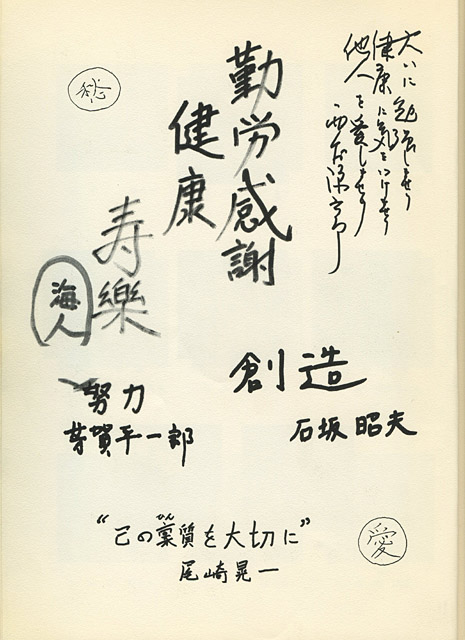 大いに勉強しませう
健康に気をつけませう
他人を愛しませう
勤労感謝
健康
寿樂
海人
創造
石坂昭夫
努力
芳賀平一郎
“己の稟質を大切に”
ひん
尾崎晃一
愛